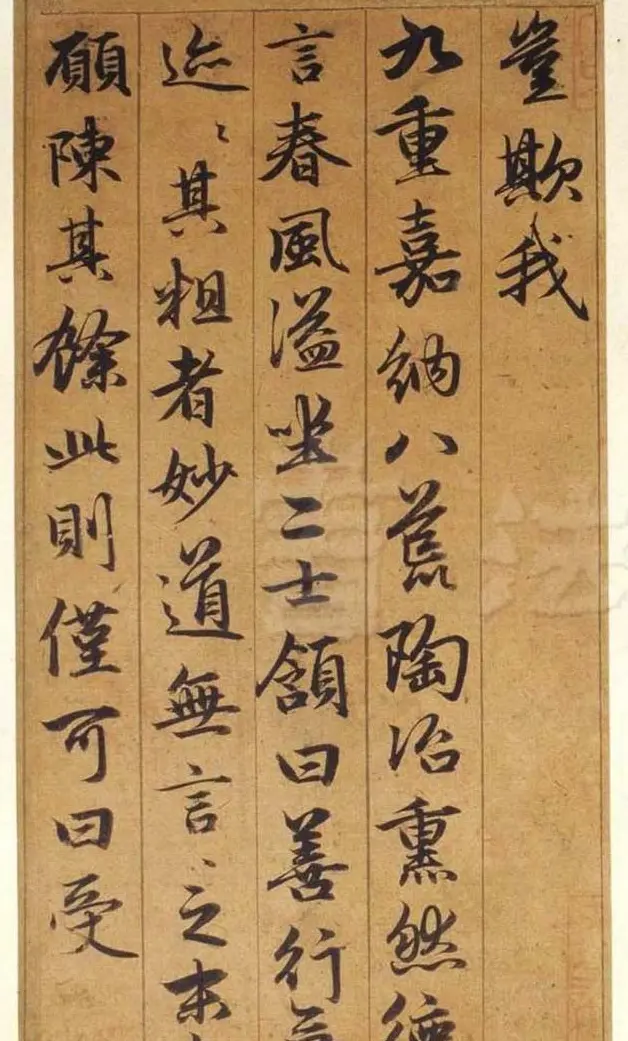 豈欺我
九重嘉納八荒陶冶熏然德
言春風溢坐二士頷曰善行
迹〻其粗者妙道無言〻之末
願陳其餘此則僅可曰受